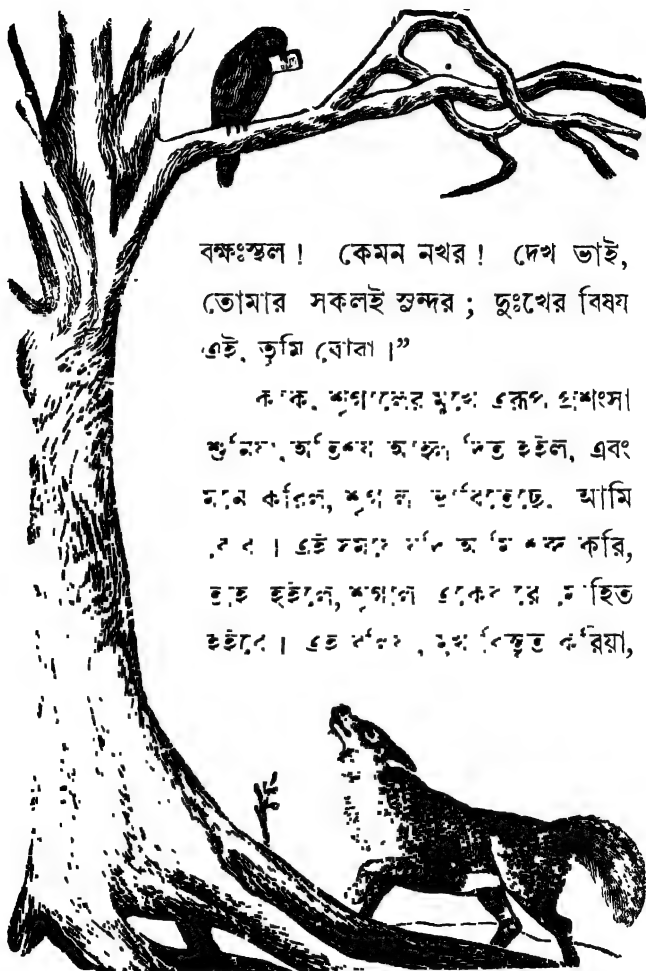 বক্ষঃস্থল ! কেমন নখর ! দেখ ভাই,
তোমার সকলই সুন্দর ; দুঃখের বিষয়
এই, তুমি বোবা ।”
কাক, শৃগালের মুখে এরূপ প্রশংসা
শুনিয়া, অতিশয় আহ্লাদিত হইল, এবং
মনে করিল, শৃগাল ভাবিতেছে, আমি
বোবা । এই সময়ে যদি আমি শব্দ করি,
তাহা হইলে, শৃগাল একেবারে মোহিত
হইবে । এই বলিয়া, মুখ বিস্তৃত করিয়া,